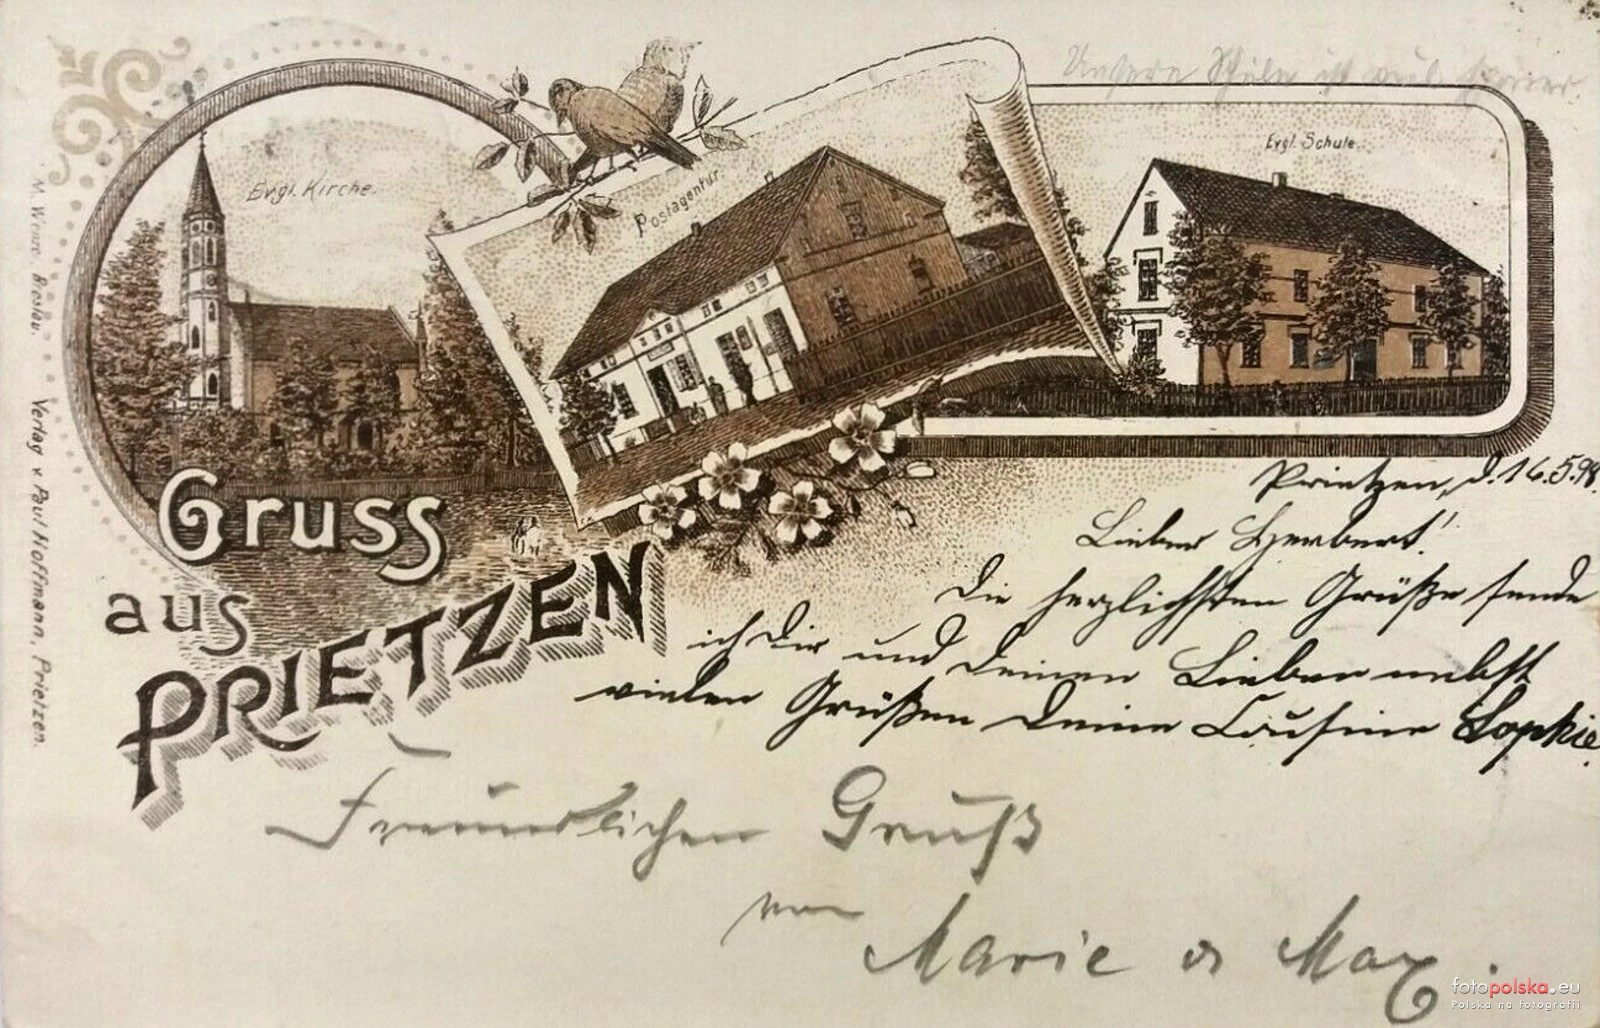 Unsere Schule ist
Evgl. Schule.
Evgl. Kirche.
Postagentur
M. Wenze. Breslau. Verlag v. Paul Hoffmann, Prietzen.
Gruss
aus
PRIETZEN
Prietzen, d. 16.5.98.
Lieber Herbert!
Die herzlichsten Grüße sende
ich Dir und Deinen Lieben nebst
vielen Grüßen Deine Cousine Sophie.
Freundlichen Gruß
von
Marie & Max.
fotopolska.eu
Polska na fotografii